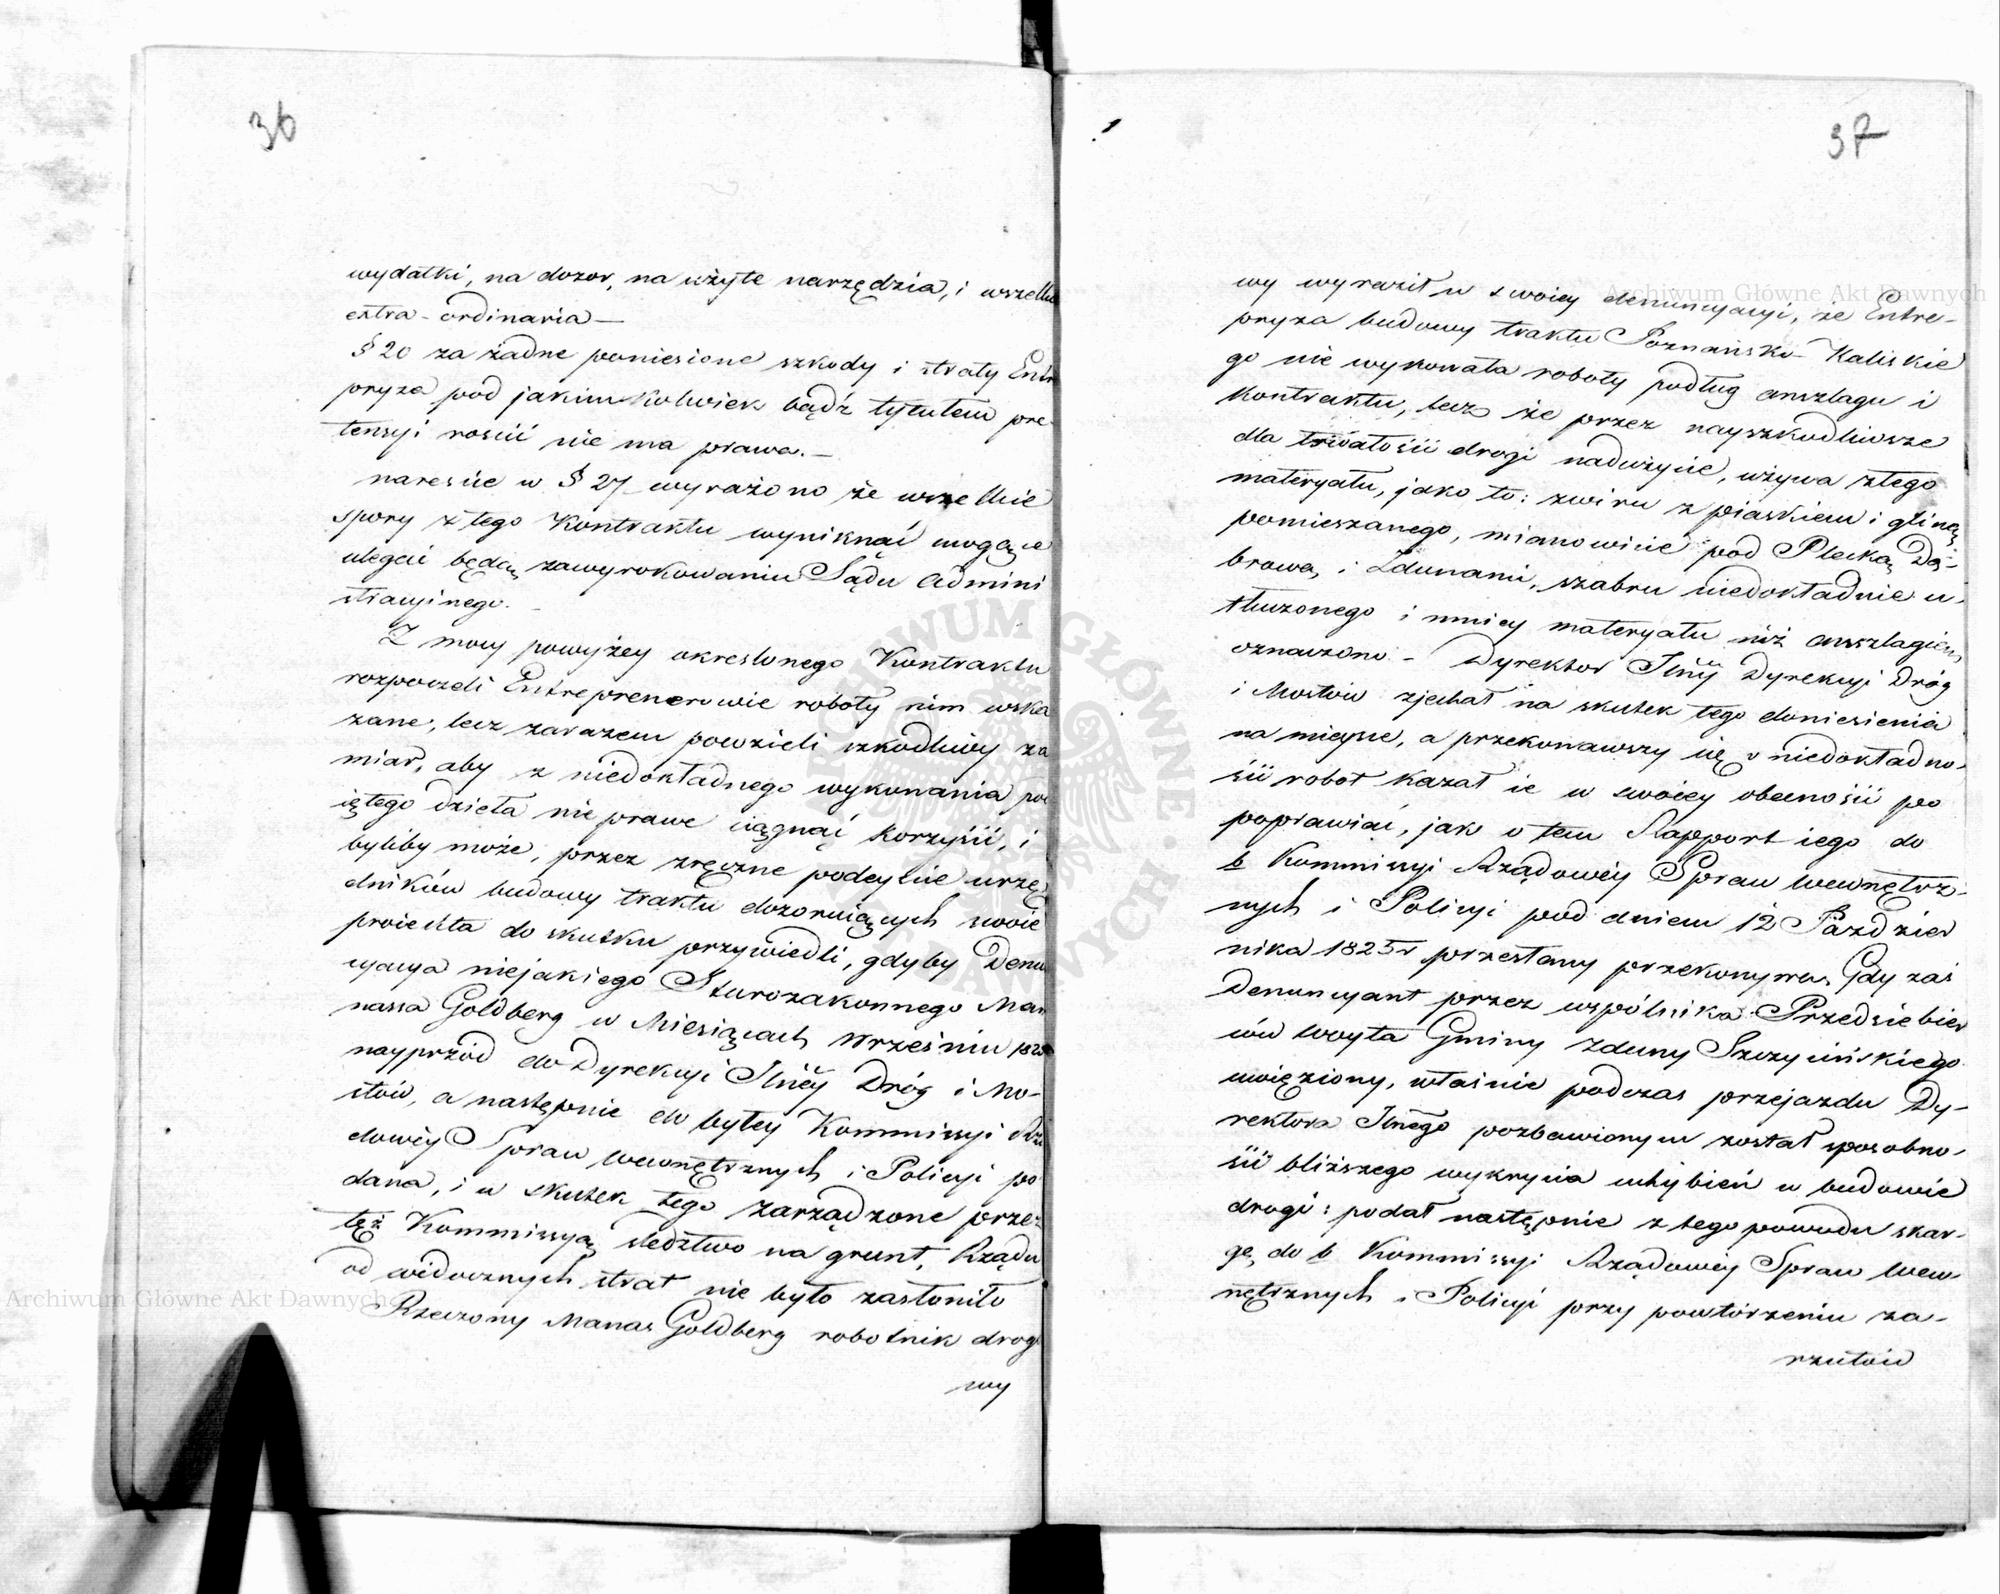 36
wydatki, na dozor, na użyte narzędzia, i wszelkie
extra-ordinaria —
§ 20 za żadne poniesione szkody i straty Entre
pryza pod jakimkolwiek bądź tytułem pre-
tensyi rościć nie ma prawa. —
nareście w § 27 wyrażono że wszelkie
spory z tego Kontraktu wyniknąć mogące
ulegać będą zawyrokowaniu Sądu Admini
stracyinego. —
Z mocy powyżey określonego Kontraktu
rozpoczeli Entreprenerowie roboty nim wska
zane, lecz zarazem powzieli szkodliwy za
miar, aby z niedokładnego wykonania pod
iętego dzieła nie prawe ciągnąć korzyści, i
byliby może, przez zręczne podeyście urzę
dników budowy traktu dozoruiących swoie
proiekta do skutku przywiedli, gdyby Denun
cyacya niejakiego Starozakonnego Man
nassa Goldberg w Miesiącach Wrześniu 1825
nayprzód do Dyrekcyi Jlney Dróg i Mo-
stów, a następnie do byłey Kommissyi Rzą
dowéy Spraw wewnętrznych i Policyi po
dana, i w skutek tego zarządzone przez
też Kommissyą śledztwo na grunt, Rządu
od widocznych strat nie było zasłoniło
Rzeczony Manas Goldberg robotnik drogo
wy
37
wy wyraził w swoiey denuncyacyi, że Entre-
pryza budowy traktu Poznańsko-Kaliskie
go nie wykonała roboty podług anszlagu i
Kontraktu, lecz że przez nayszkodliwsze
dla trwałości drogi nadużycie, używa złego
materyału, jako to: zwiru z piaskiem i gliną
pomieszanego, mianowicie pod Plecką Dą-
brową, i Zdunami, szabru niedokładnie u-
tłuczonego i mniey materyału niż anszlagiem
oznaczono — Dyrektor Jlny Dyrekcyi Dróg
i Mostów zjechał na skutek tego doniesienia
na mieysce, a przekonawszy się o niedokładno-
ści robot kazał ie w swoiey obecności po
poprawiać, jak o tem Rapport iego do
b Kommissyi Rządowéy Spraw wewnętrz-
nych i Policyi pod dniem 12 Paździer
nika 1825 r przesłany przekonywa. Gdy zaś
Denuncyant przez wspólnika Przedsiębier
ców woyta Gminy Zduny Szczycińskiego
uwięziony, właśnie podczas przejazdu Dy-
rektora Jlnego pozbawionym został sposobno-
ści bliższego wykrycia uchybień w budowie
drogi: podał następnie z tego powodu skar-
gę do b Kommissyi Rządowéy Spraw wew-
nętrznych i Policyi przy powtórzeniu za-
rzutów
Archiwum Główne Akt Dawnych
Archiwum Główne Akt Dawnych
ARCHIWUM GŁÓWNE AKT DAWNYCH